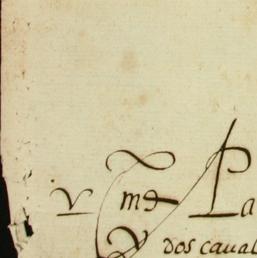 V md Pa
y dos caval